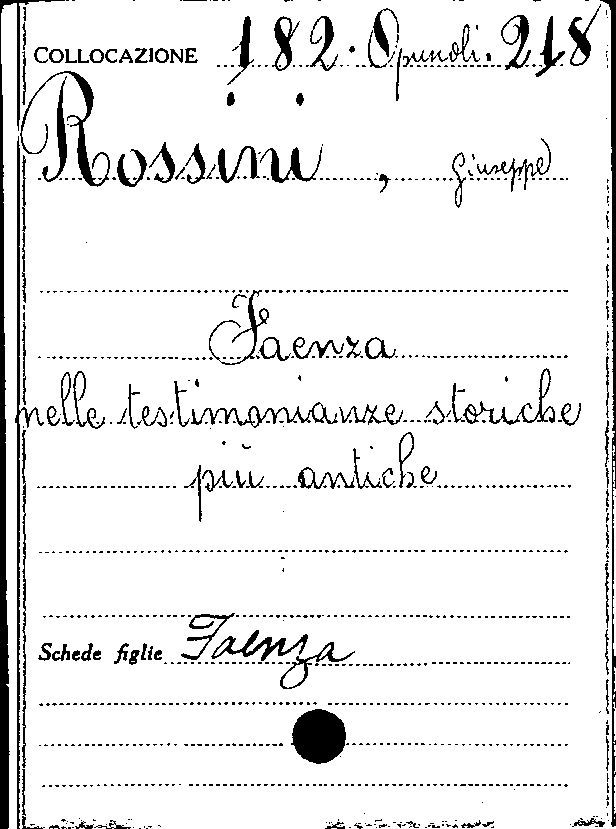 COLLOCAZIONE 182. Opuscoli. 218
Rossini, Giuseppe
Faenza
nelle testimonianze storiche
più antiche
Schede figlie Faenza